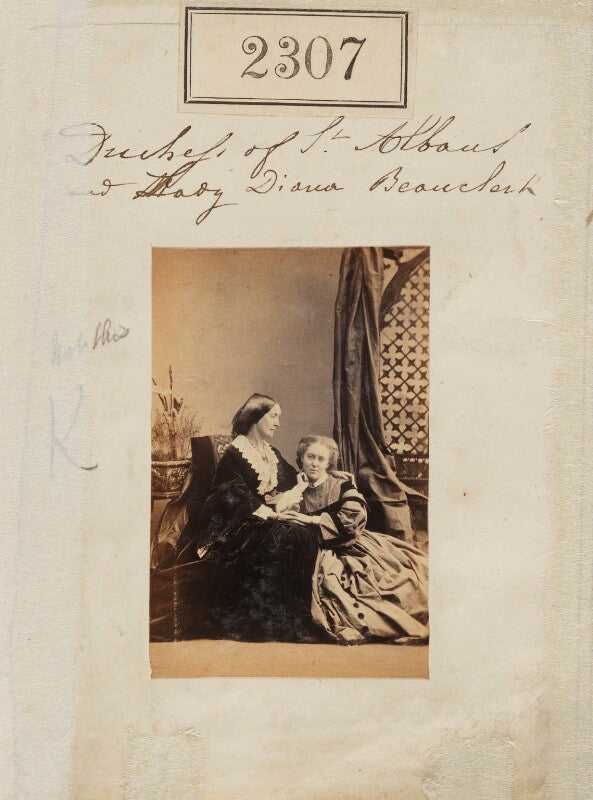 2307
Duchess of St Albans
and Lady Diana Beauclerk
this
K